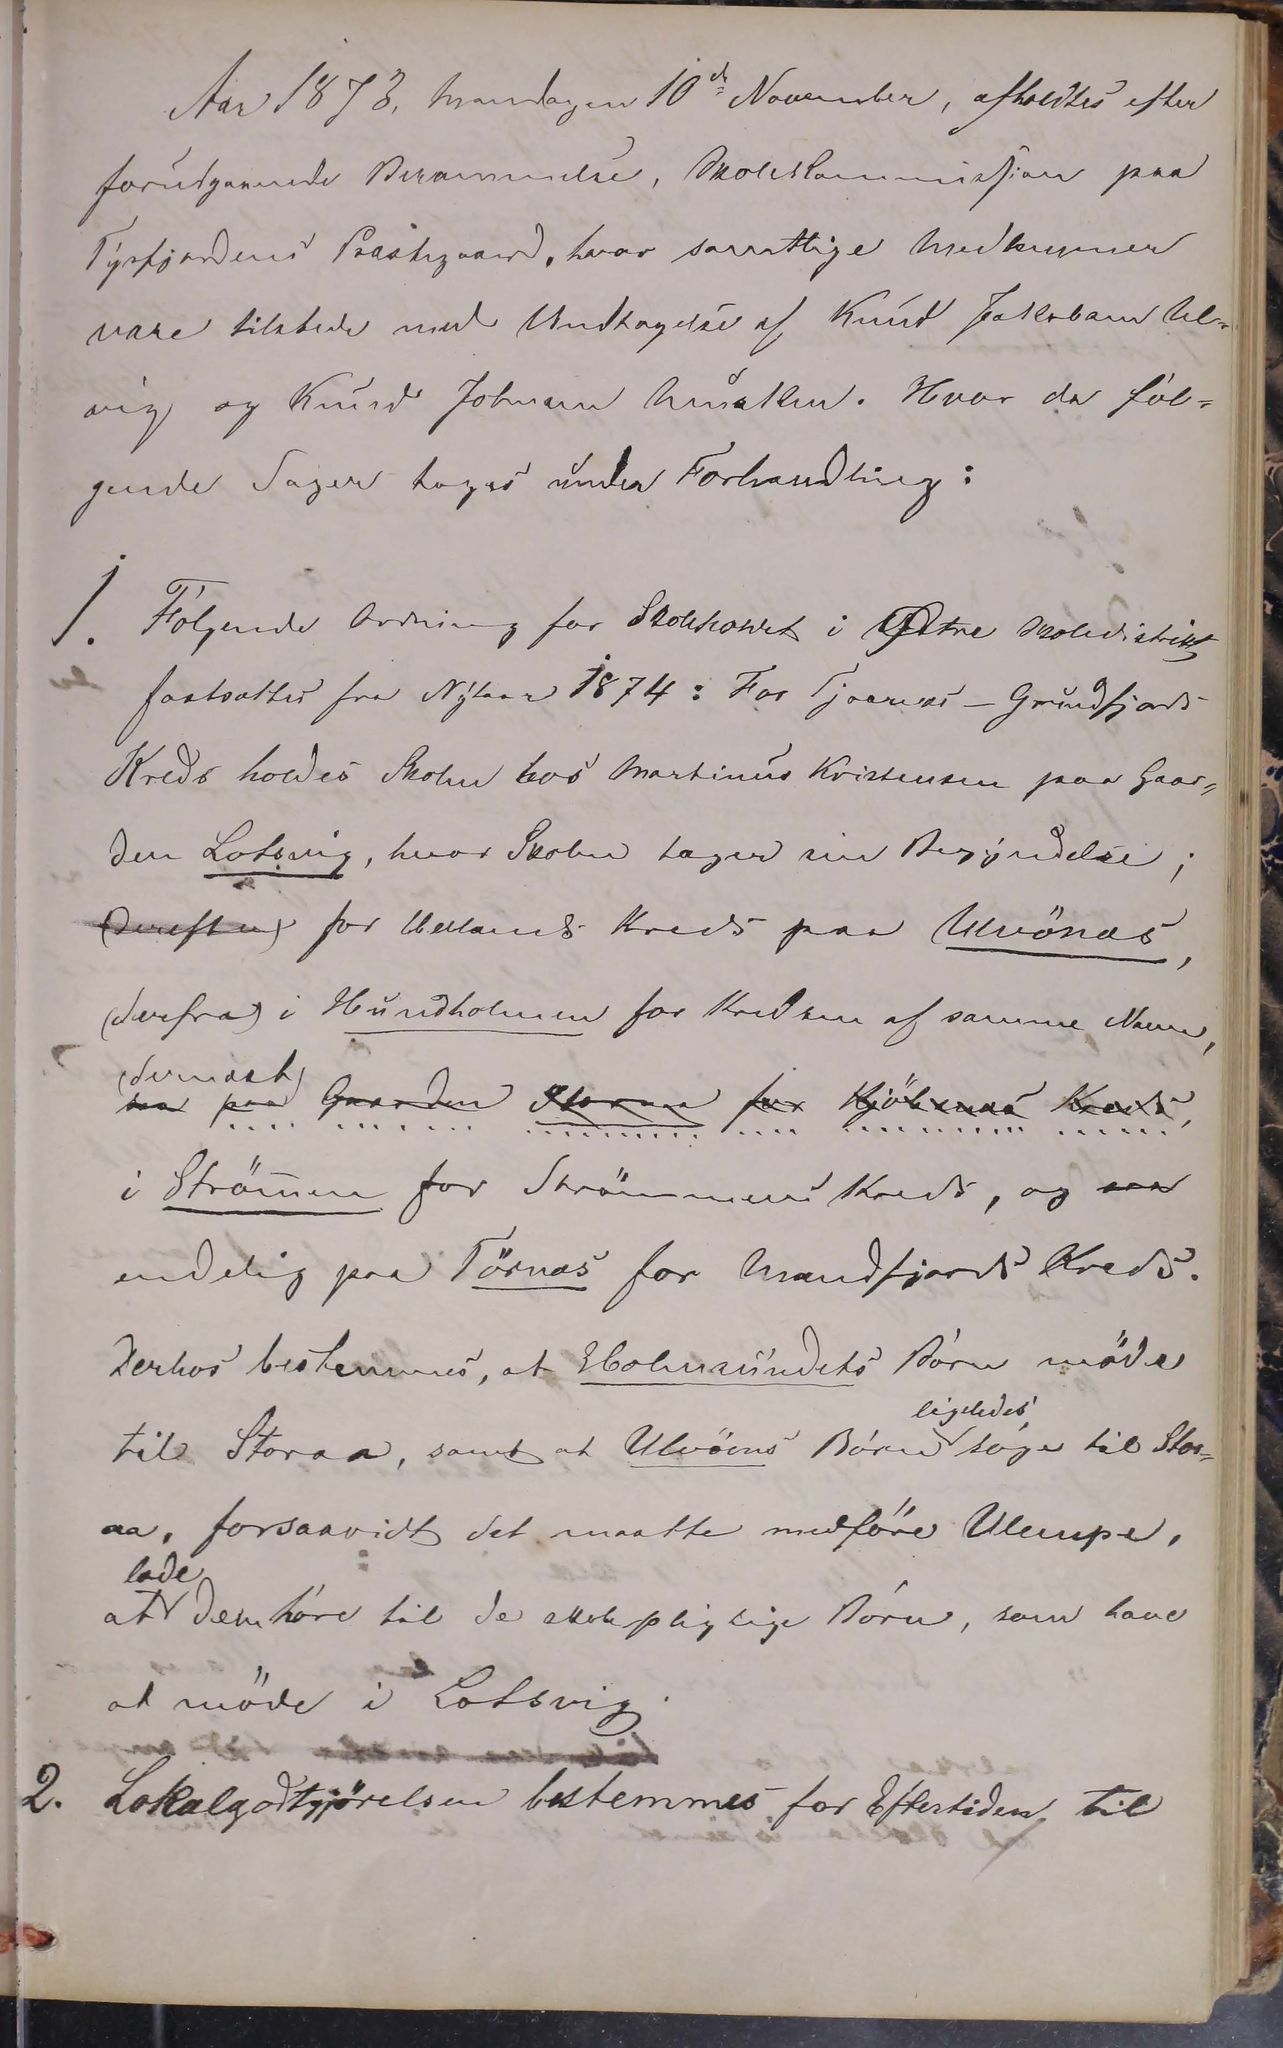 Aar 1873, Mandagen 10de November, afholdtes efter
forudgaaende Berammelse, Skolekommission paa
Tysfjordens Præstegaard, hvor samtlige Medlemmer
vare tilstede med Undtagelse af Knud Jakobsen Ul-
vig og Knud Johnsen Musken. Hvor da föl-
gende Sager toges under Forhandling:
1. Fölgende Ordning for Skoleholdet i Östre Skoledistrikt
fastsattes fra Nytaar 1874: For Tjærnæs - Grundfjords
Kreds holdes Skolen hos Martinus Kristensen paa Gaar-
den Lotsvig, hvor Skolen tager sin Begyndelse;
(derefter) for Kreds paa Ulvönæs,
(derfra) i Hundholmen for Kredsen af samme Navn,
(dernæst)
saa paa Gaarden Storaa for Kjöbsnæs Kreds,
i Strömmen for Strömmens Kreds, og saa
endelig paa Törnæs for Mandfjords Kreds.
Derhos bestemmes, at Holmsundets Börn möde
til Storaa, samt at Ulvöens Börn ligeledes söge til Stor-
aa, forsaavidt det maatte medföre Ulempe,
at lade dem höre til de skolepligtige Börn, som have
at möde i Lotsvig.
2. Lokalgodtgjörelsen bestemmes for Eftertiden til